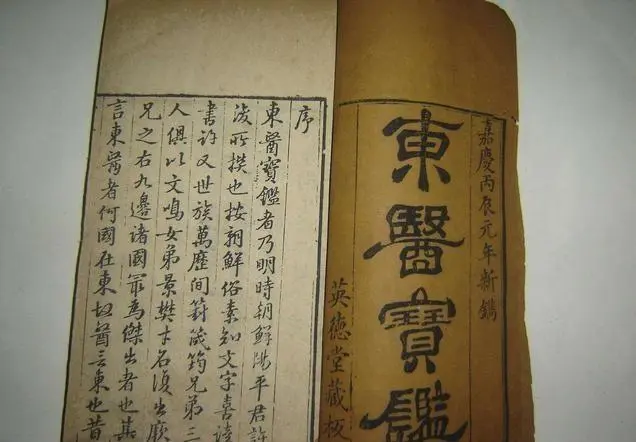 嘉慶丙辰元年新鐫
東醫寶鑑
英德堂藏板
序
東醫寶鑑者乃明時朝鮮陽平君許
浚所撰也按朝鮮俗素知文字喜讀
書許又世族萬歷間篈筬筠兄弟三
人俱以文鳴女弟景樊才名復出厥
兄之右九邊諸國㝡爲傑出者也其
言東醫者何國在東故醫言東也昔